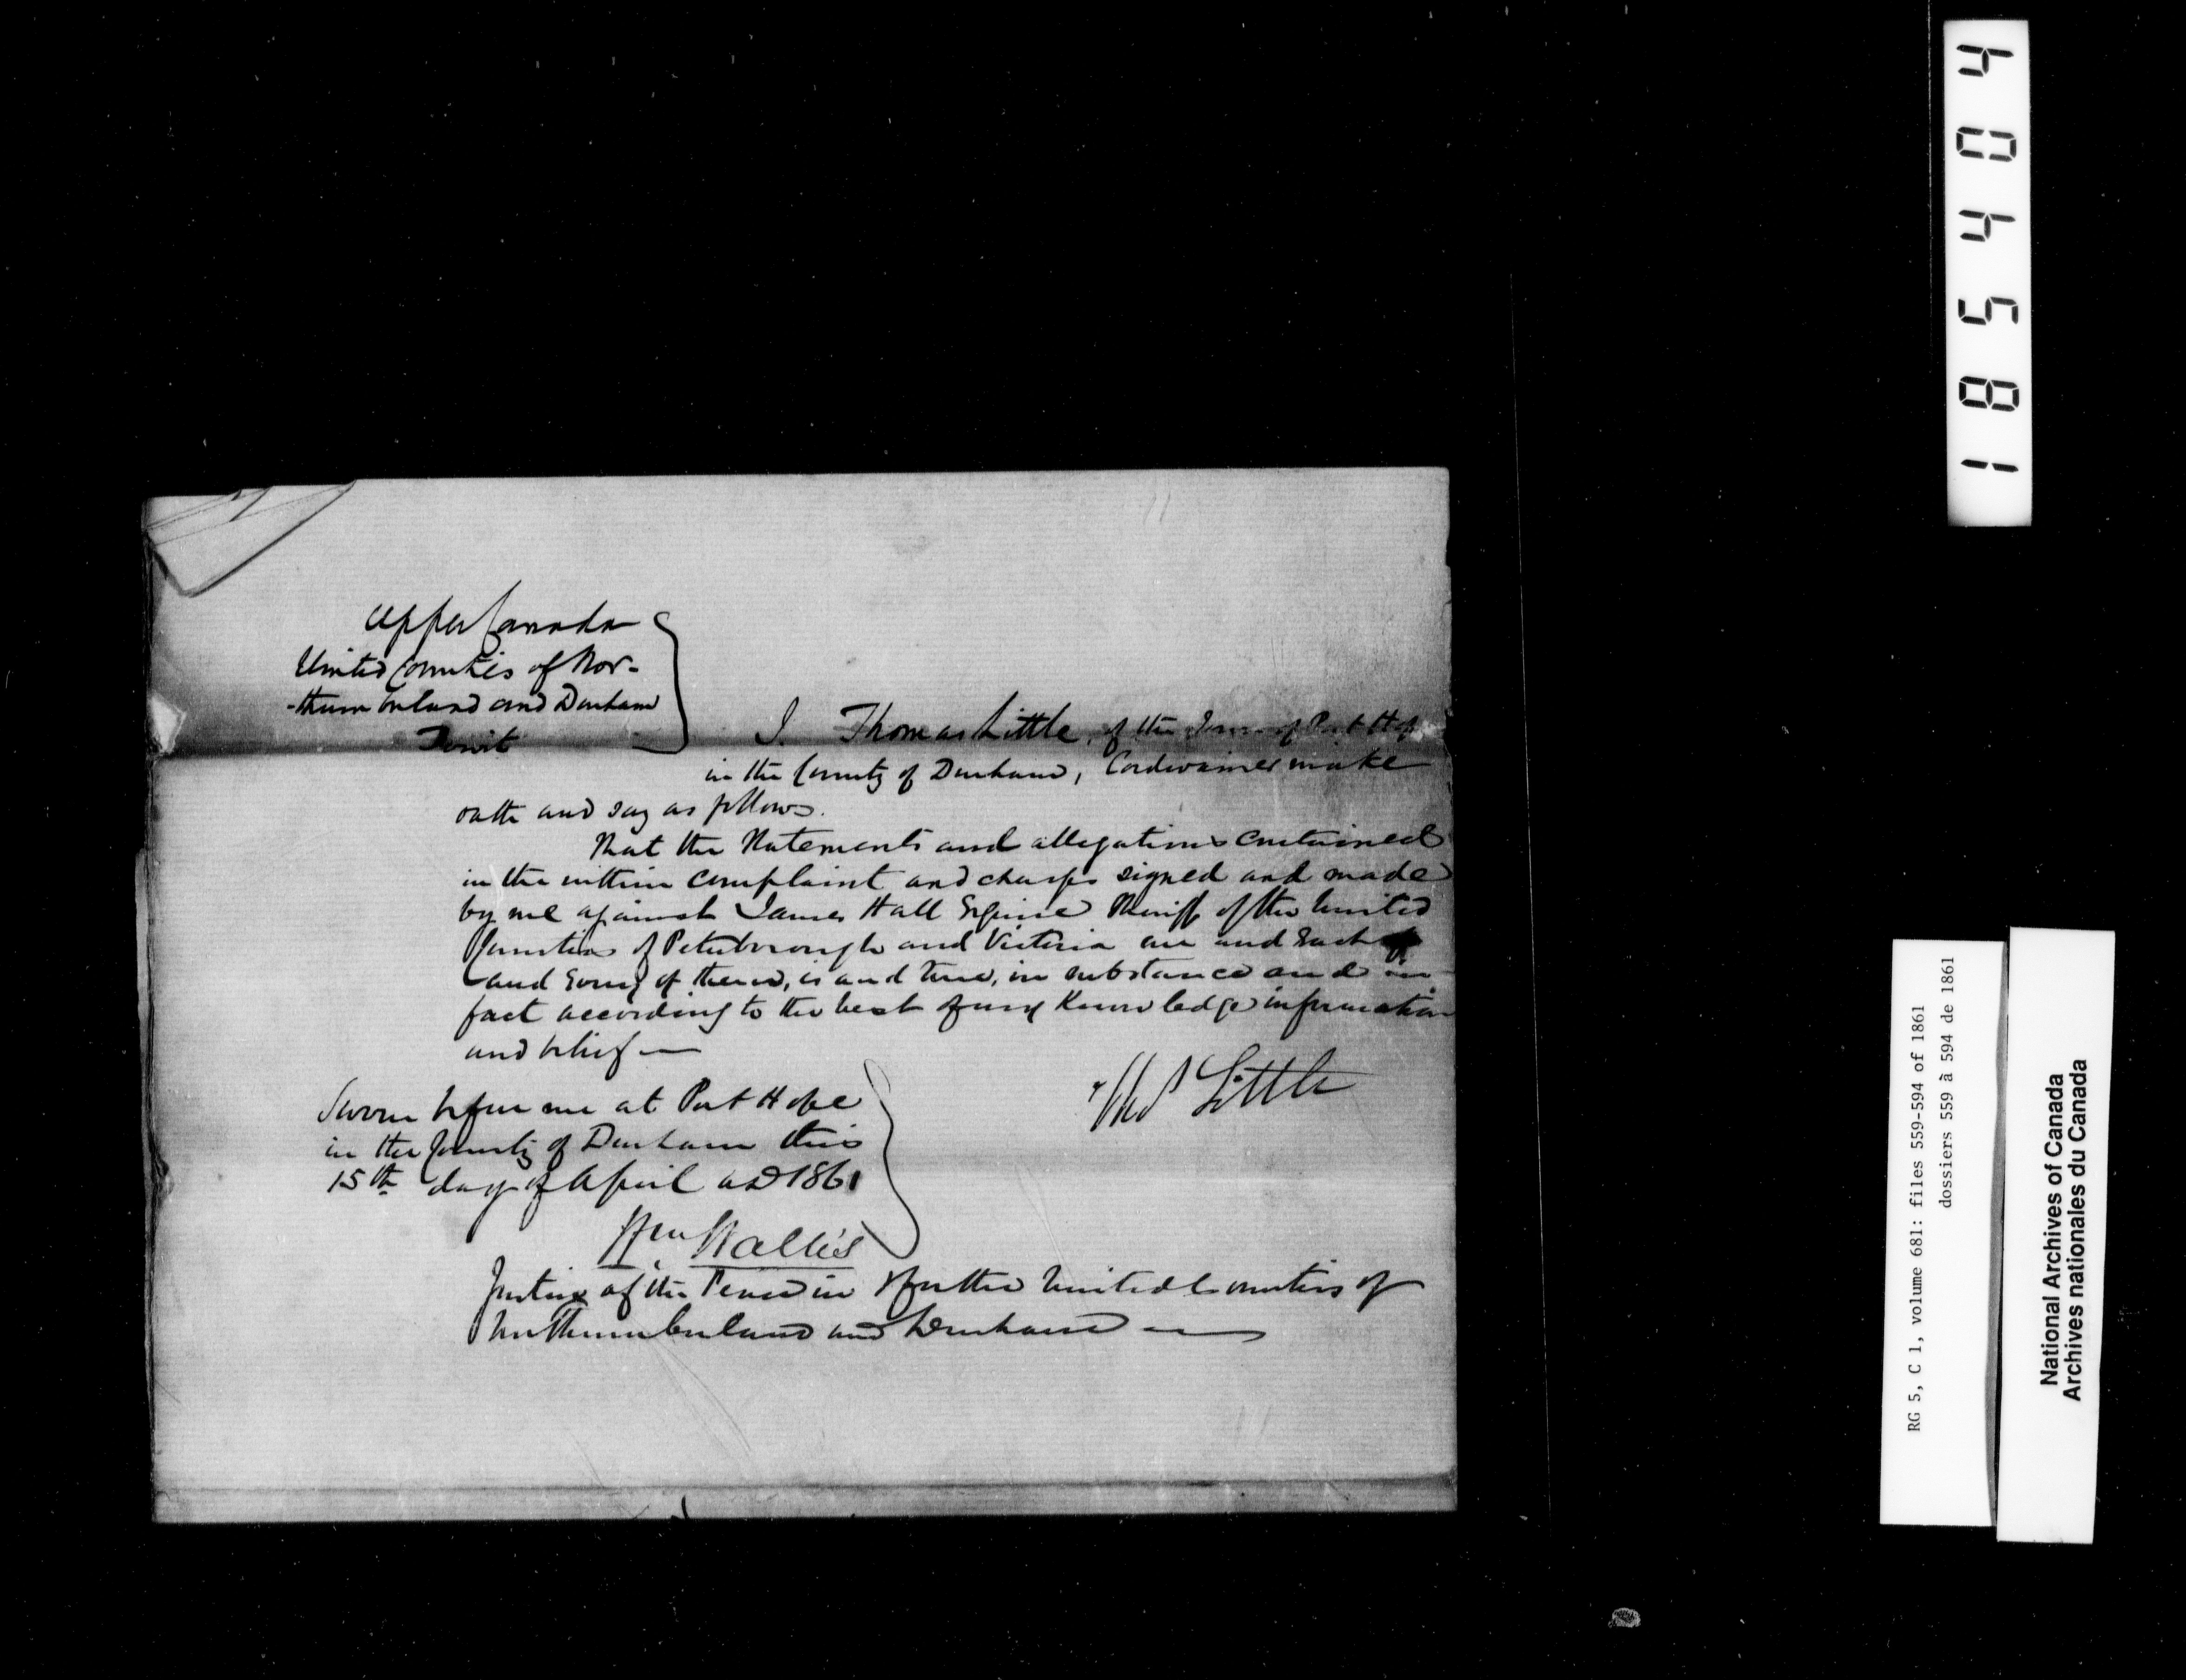 Upper Canada
United Counties of Nor-
-thumberland and Durham
To wit
I Thomas Little, of the Town of Port Hope
in the County of Durham, Cordwainer make
oath and say as follows.
That the Statements and allegations contained
in the within complaint and charges signed and made
by me against James Hall Esquire Sheriff of the United
Counties of Peterborough and Victoria are and Each
and Every of them, is and true, in substance and in
fact according to the best of my Knowledge information
and belief —
Thos Little
Sworn before me at Port Hope
in the County of Durham this
15th day of April AD 1861
Wm Wallis
Justice of the Peace in & for the United Counties of
Northumberland and Durham —
185404
RG 5, C 1, volume 681: files 559-594 of 1861
dossiers 559 à 594 de 1861
National Archives of Canada
Archives nationales du Canada